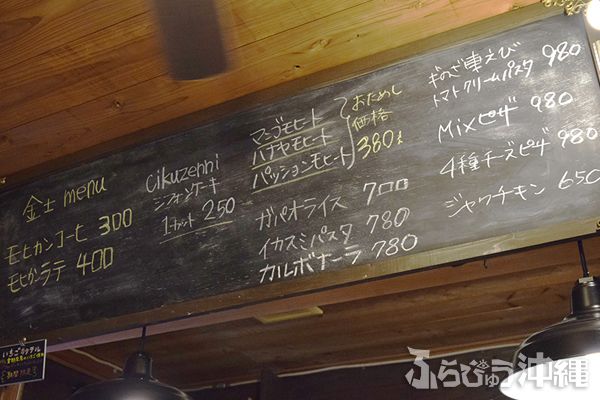 金土 menu
モヒカンコーヒ 300
モヒカンラテ 400
cikuzenni
シフォンケーキ
1カット 250
マンゴモヒート
パッションモヒート
おためし
価格
380
ガパオライス 700
イカスミパスタ 780
カルボナーラ 780
ギのざ車えび
トマトクリームパスタ 980
Mixピザ 980
4種チーズピザ 980
ジャークチキン 650
ふらびゅう沖縄